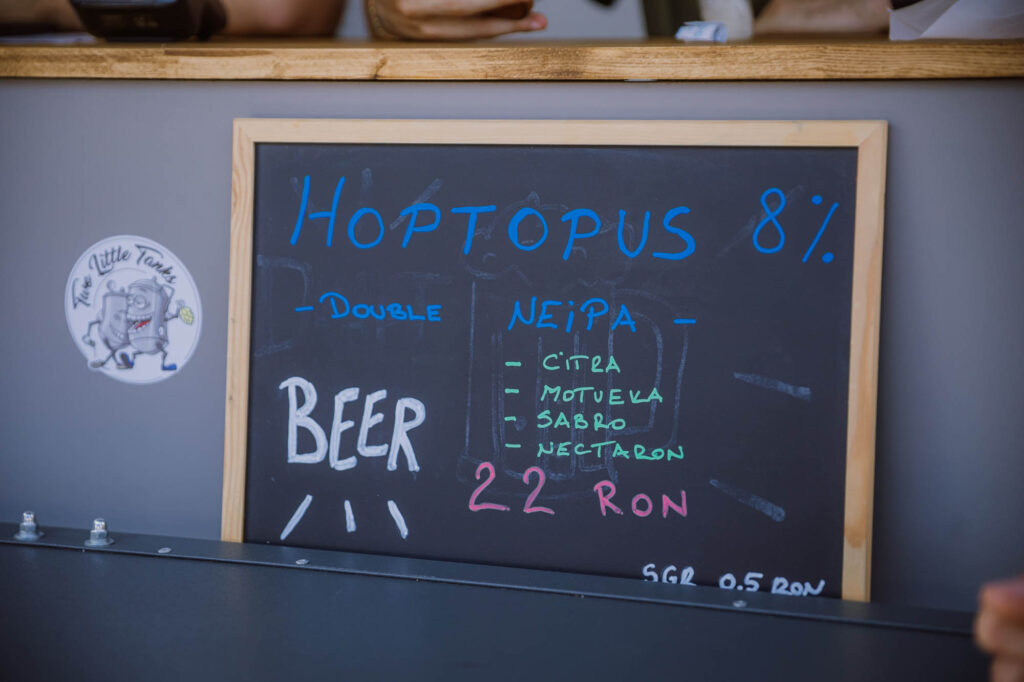 Two Little Tanks
HOPTOPUS 8%
- DOUBLE NEiPA -
- CiTRA
- MOTUEKA
- SABRO
- NECTARON
BEER
22 RON
SGR 0.5 RON